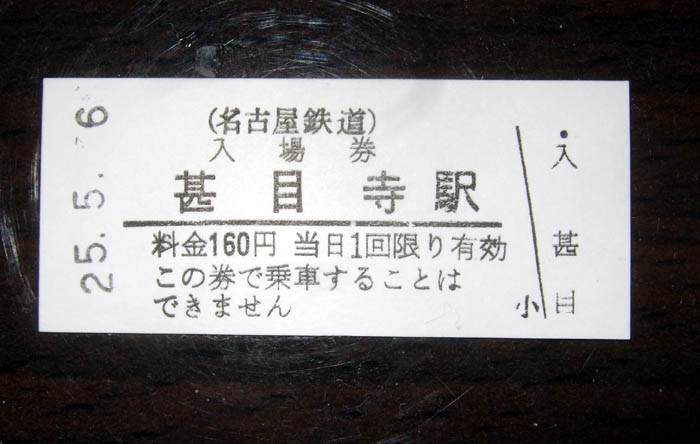 25.5.-6
(名古屋鉄道)
入場券
甚目寺駅
料金160円 当日1回限り有効
この券で乗車することは
できません
入
甚
目
小